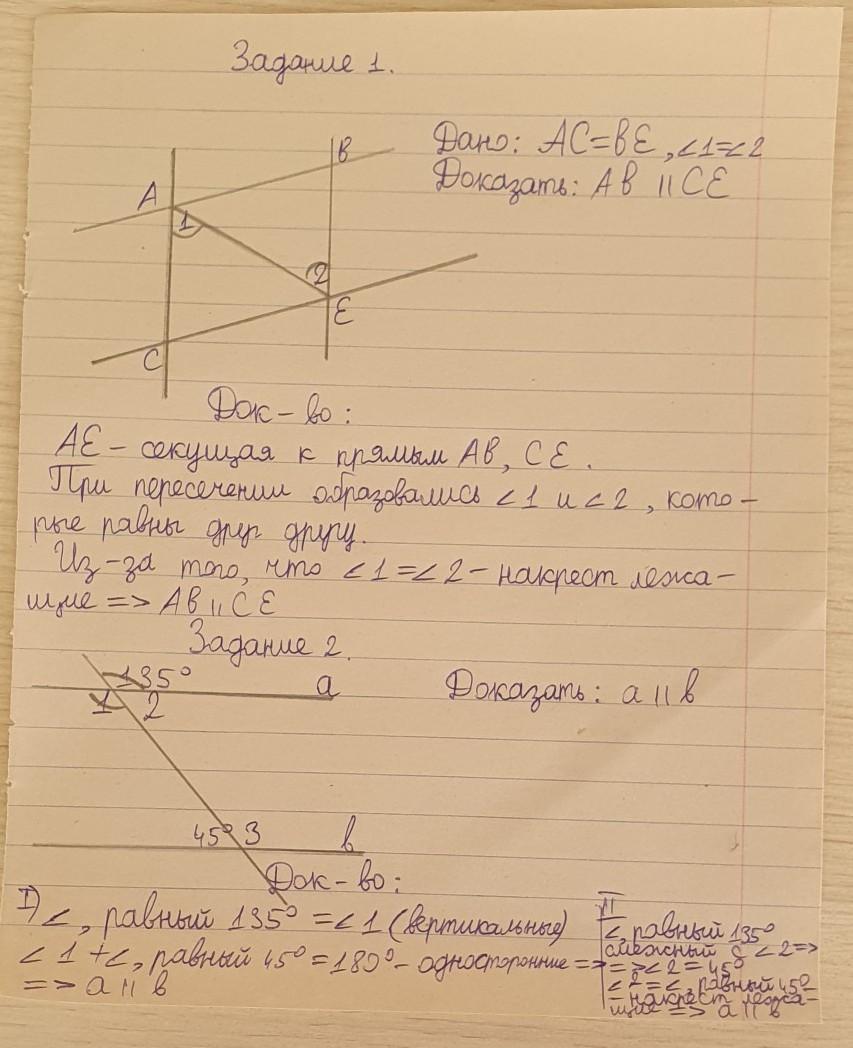 Задание 1.
Дано: AC=BE, ∠1=∠2
Доказать: AB || CE
B
A
1
2
E
C
Док-во:
AE - секущая к прямым AB, CE.
При пересечении образовались ∠1 и ∠2, кото-
рые равны друг другу.
Из-за того, что ∠1=∠2 - накрест лежа-
щие => AB || CE
Задание 2.
135°
a
Доказать: a || b
1 2
45° 3 b
Док-во:
I) ∠, равный 135° = ∠1 (вертикальные)
∠1 + ∠, равный 45° = 180° - односторонние =>
=> a || b
II
∠ равный 135°
смежный с ∠2 =>
=> ∠2 = 45°
∠2 = ∠, равный 45° -
- накрест лежа-
щие => a || b